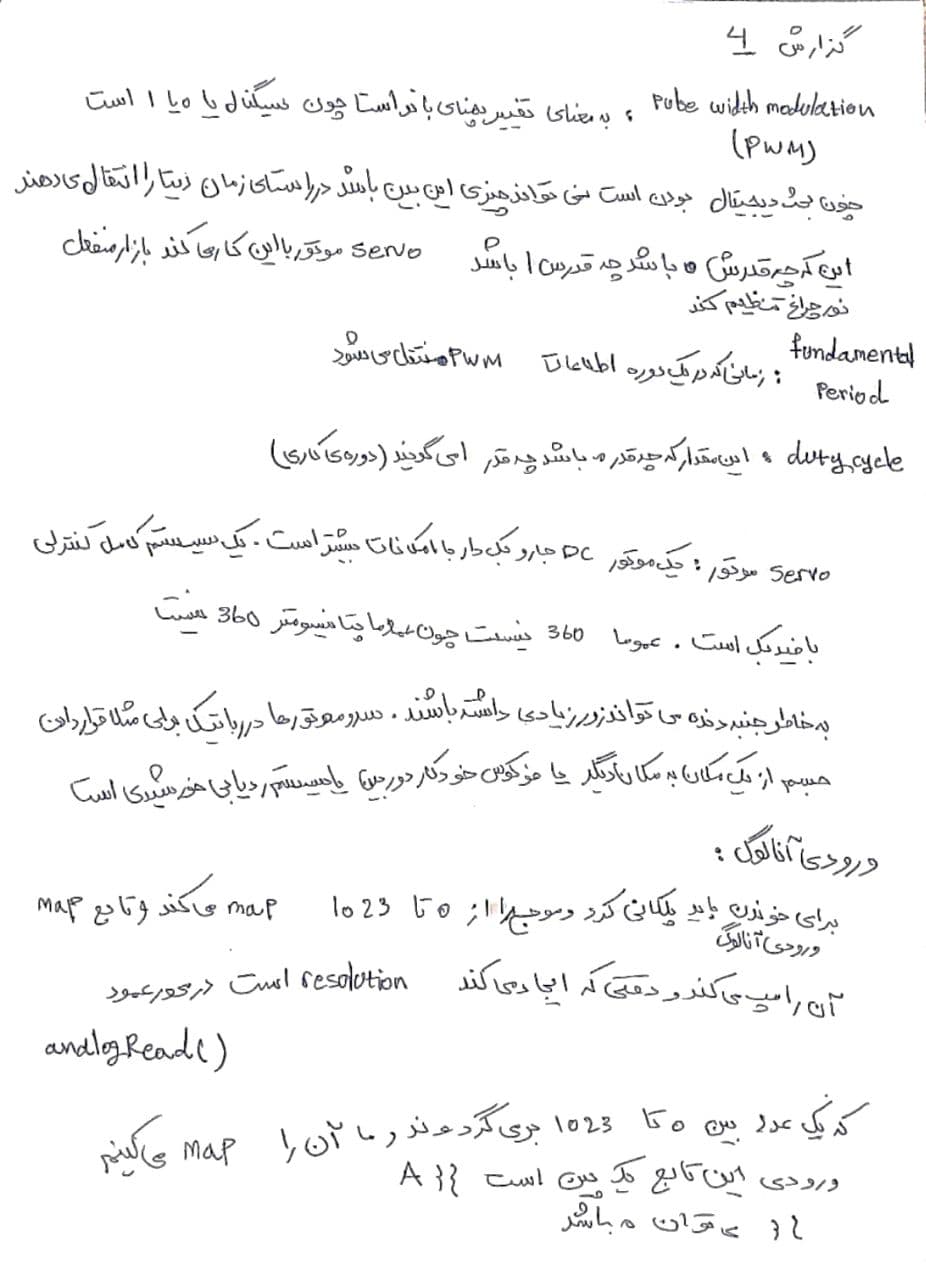 گزارش 4
Pulse width modulation : به معنای تغییر پهنای باند است چون سیگنال یا 0 یا 1 است
(PWM)
چون بحث دیجیتال بودن است نمی تواند چیزی این بین باشد در راستای زمان دیتا را انتقال می دهند
این که چه قدرش 0 باشد چه قدرش 1 باشد servo موتور با این کار می کند
نور چراغ تنظیم کند
fundamental Period : زمانی که در یک دوره اطلاعات PWM منتقل می شود
duty cycle : این مقدار که چه قدر 0 باشد چه قدر 1 می گویند (دوره ی کاری)
servo موتور : یک موتور DC جاروبک دار با امکانات بیشتر است . یک سیستم کامل کنترلی
با فیدبک است . عموما 360 نیست چون عموما پتانسیومتر 360 نیست
به خاطر جنبه دنده می تواند زور زیادی داشته باشند . سروموتورها در رباتیک برای مثلا قرار دادن
جسم از یک مکان به مکان دیگر یا فوکوس خودکار دوربین یا سیستم ردیابی خورشیدی است
ورودی آنالوگ :
برای خوندن ورودی آنالوگ باید پلکانی کرد و موج را از 0 تا 1023 map می کند و تابع map
آن را مپ می کند و دقتی که ایجاد می کند resolution است در محور عمود
analogRead()
که یک عدد بین 0 تا 1023 برمی گردوند و ما آن را map می کنیم
ورودی این تابع یک پین است A {{
}{ می توان 0 باشد